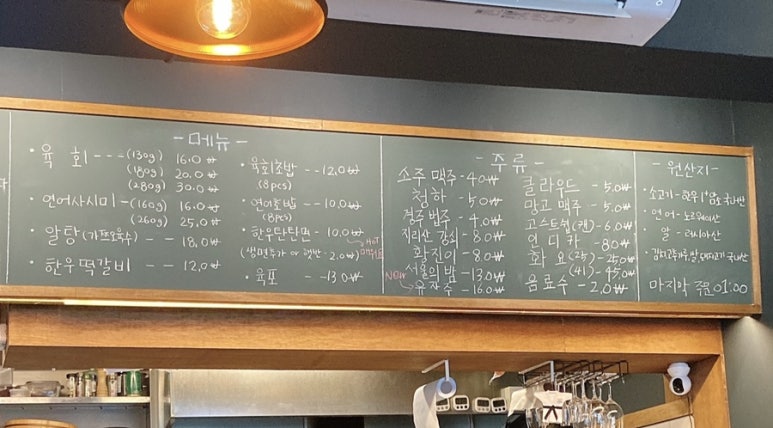 - 메뉴 -
· 육 회 --- (130g) 16.0 ₩
(180g) 20.0 ₩
(280g) 30.0 ₩
· 연어사시미 - (160g) 16.0 ₩
(260g) 25.0 ₩
· 알탕 (가쯔오육수) -- 18.0 ₩
· 한우떡갈비 -- 12.0 ₩
· 육회초밥 -- 12.0 ₩
(8pcs)
· 연어초밥 -- 10.0 ₩
(8pcs)
· 한우탄탄면 - 10.0 ₩
HOT
(생면추가 or 햇반 - 2.0 ₩)
· 육포 -- 13.0 ₩
- 주류 -
소주 맥주 - 4.0 ₩
청하 - 5.0 ₩
경주법주 - 4.0 ₩
지리산 강쇠 - 8.0 ₩
황진이 - 8.0 ₩
서울의밤 - 13.0 ₩
NEW
유자주 - 16.0 ₩
클라우드 - 5.0 ₩
망고 맥주 - 5.0 ₩
고스트쉽 (캔) - 6.0 ₩
인디카 - 8.0 ₩
화요 (25) - 25.0 ₩
(41) - 45.0 ₩
음료수 - 2.0 ₩
- 원산지 -
· 소고기 - 한우 1⁺ 암소 국내산
· 연어 - 노르웨이산
· 알 - 러시아산
· 김치고춧가루, 쌀, 돼지고기 국내산
마지막 주문 01:00